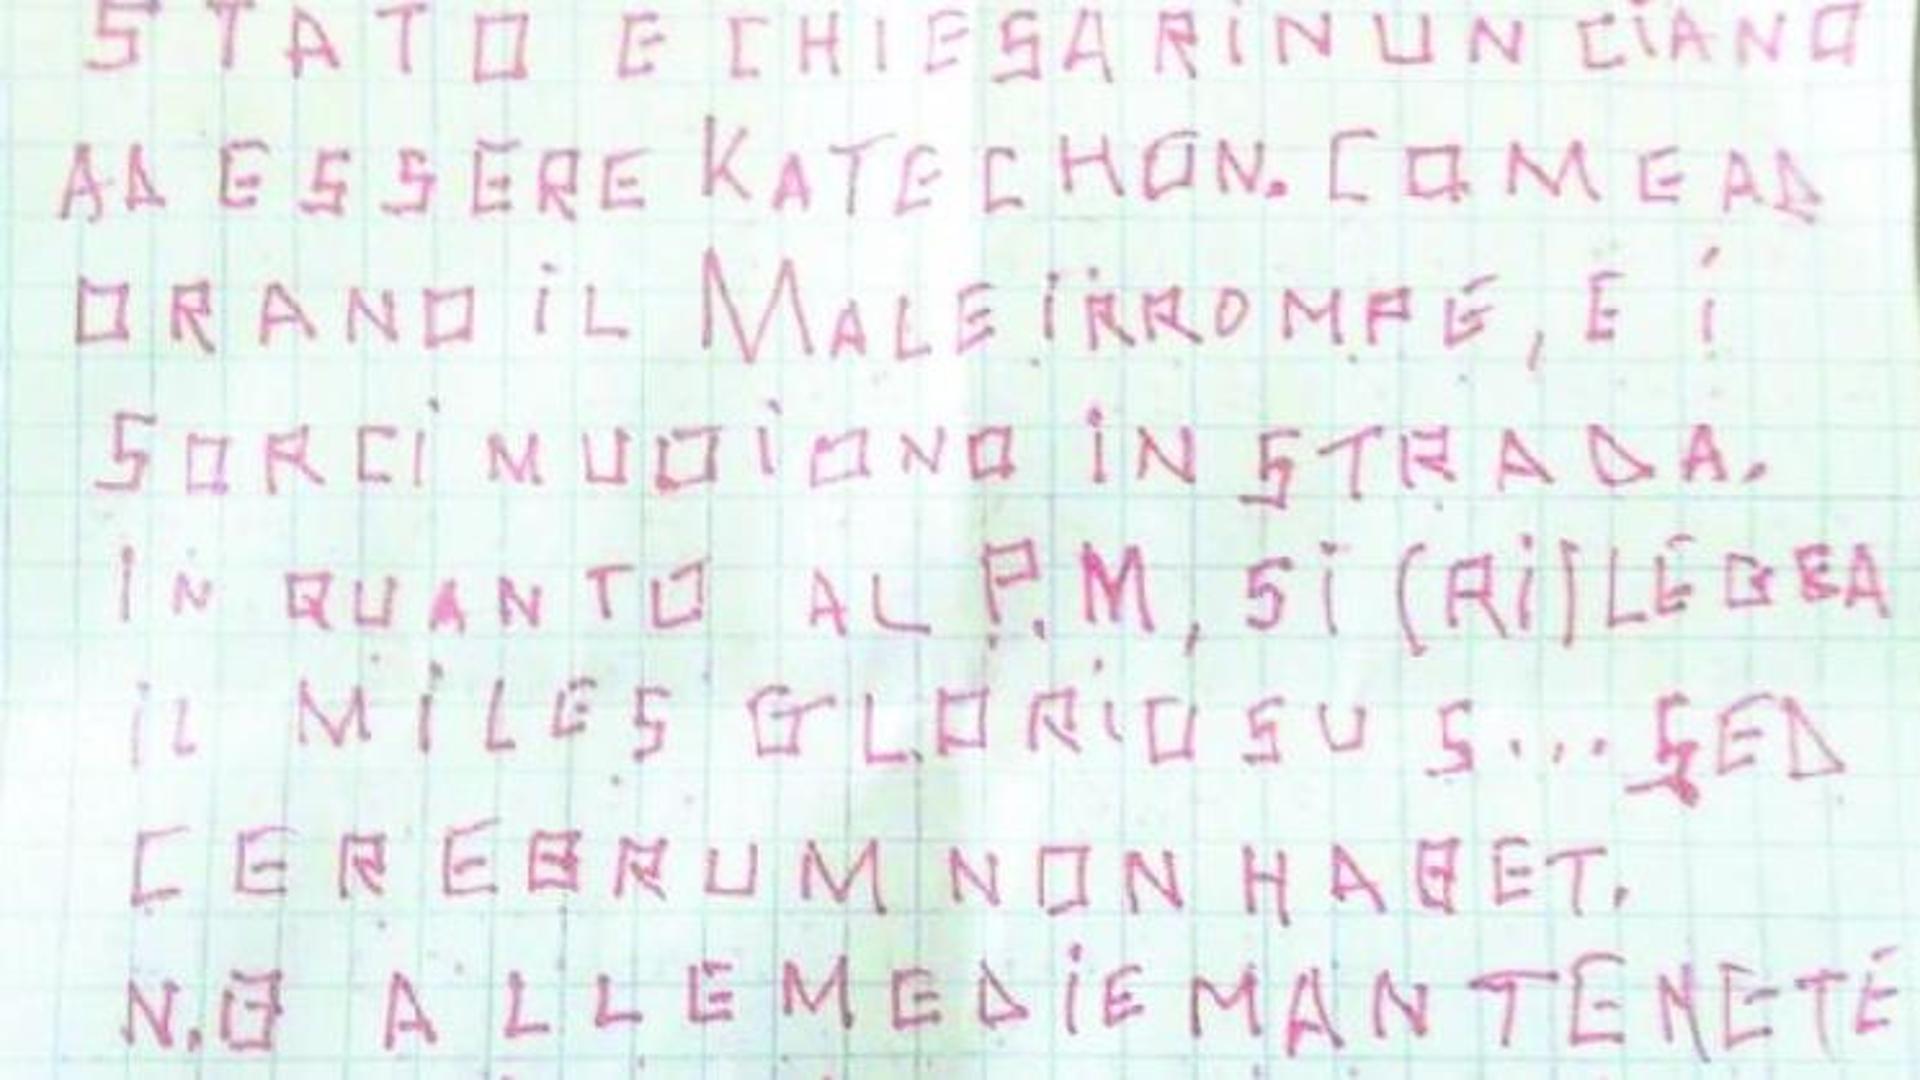 STATO E CHIESA RINUNCIANO
AD ESSERE KATECHON. COME AD
ORANO IL MALE IRROMPE, E I
SORCI MUOIONO IN STRADA.
IN QUANTO AL P.M, SI (RI)LEGGA
IL MILES GLORIOSUS... SED
CEREBRUM NON HABET.
N.B ALLE MEDIE MANTENETE